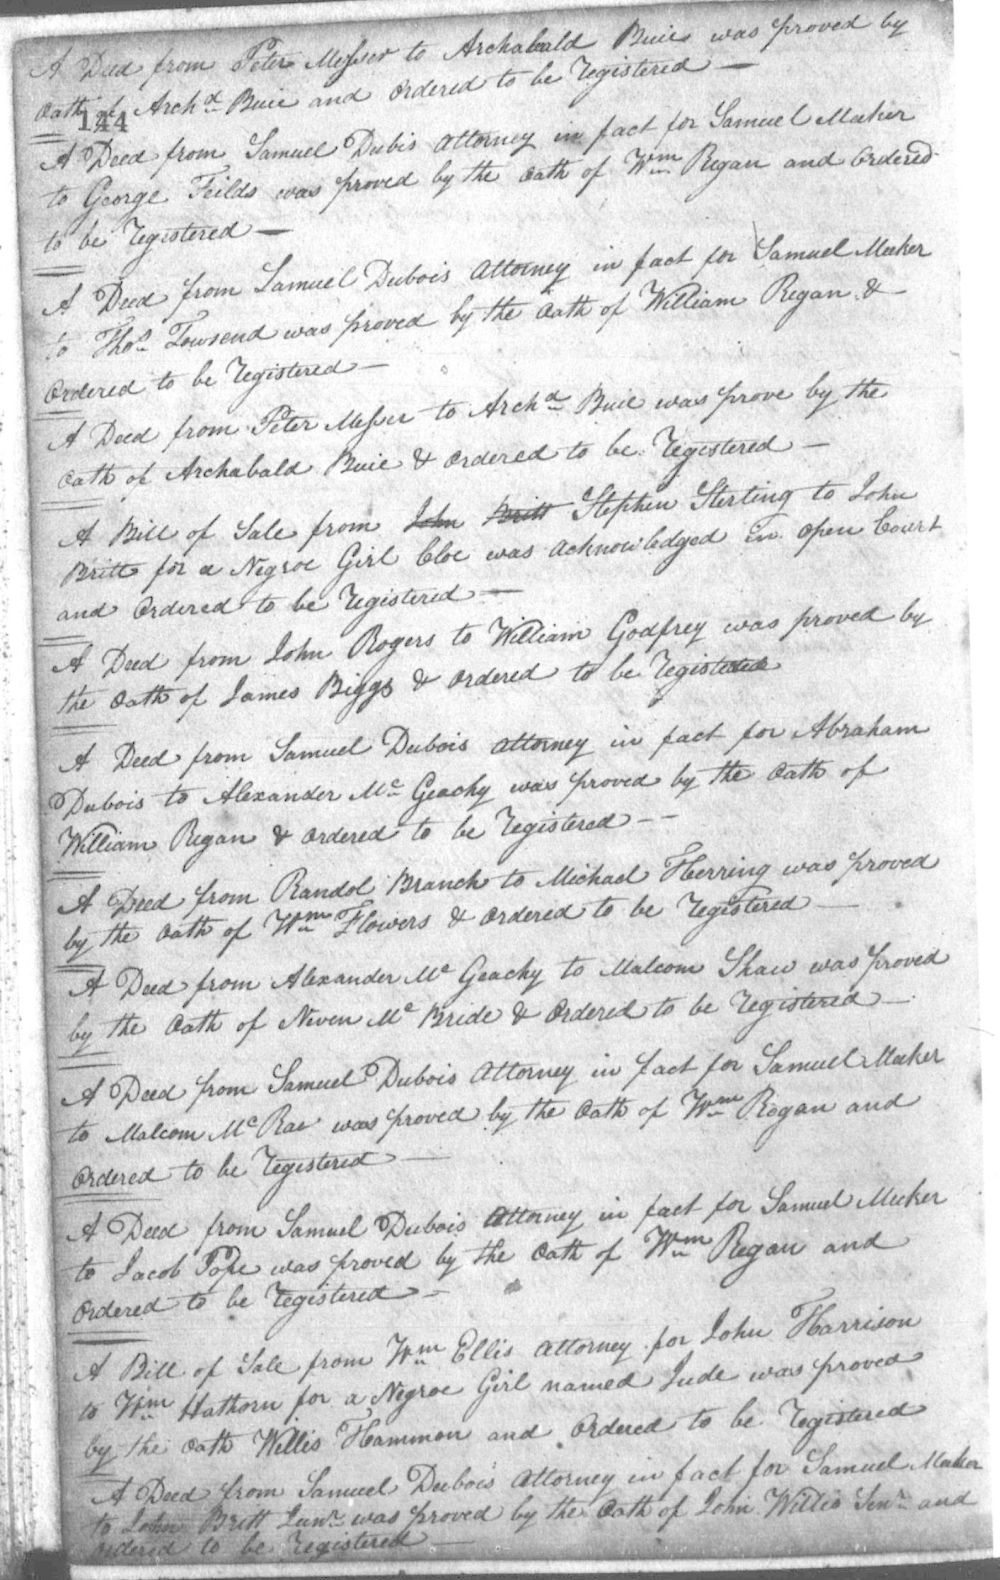 A Deed from Peter Messer to Archabald Buie was proved by
Oath of Archd Buie and Ordered to be Registered —
144
A Deed from Samuel Dubis attorney in fact for Samuel Meeker
to George Feilds was proved by the Oath of Wm Regan and Ordered
to be Registered —
A Deed from Samuel Dubois Attorney in fact for Samuel Meeker
to Thos Towsend was proved by the Oath of William Regan &
Ordered to be Registered —
A Deed from Peter Messer to Archd Buie was prove by the
Oath of Archabald Buie & Ordered to be Registered —
A Bill of Sale from John Britt Stephen Sterling to John
Britt for a Negroe Girl Cloe was Acknowledged in open Court
and Ordered to be Registered —
A Deed from John Rogers to William Godfrey was proved by
the Oath of James Biggs & Ordered to be Registered
A Deed from Samuel Dubois attorney in fact for Abraham
Dubois to Alexander Mc Geachy was proved by the Oath of
William Regan & Ordered to be Registered — —
A Deed from Randol Branch to Michael Herring was proved
by the Oath of Wm Flowers & Ordered to be Registered —
A Deed from Alexander Mc Geachy to Malcom Shaw was proved
by the Oath of Neven Mc Bride & Ordered to be Registered —
A Deed from Samuel Dubois Attorney in fact for Samuel Meeker
to Malcom McRae was proved by the Oath of Wm Regan and
Ordered to be Registered —
A Deed from Samuel Dubois Attorney in fact for Samuel Meeker
to Jacob Pope was proved by the Oath of Wm Regan and
Ordered to be Registered —
A Bill of Sale from Wm Ellis attorney for John Harrison
to Wm Hathorn for a Negroe Girl named Jude was proved
by the Oath Willis Hammon and Ordered to be Registered
A Deed from Samuel Dubois attorney in fact for Samuel Meeker
to John Britt Junr was proved by the Oath of John Willis Senr and
Ordered to be Registered —